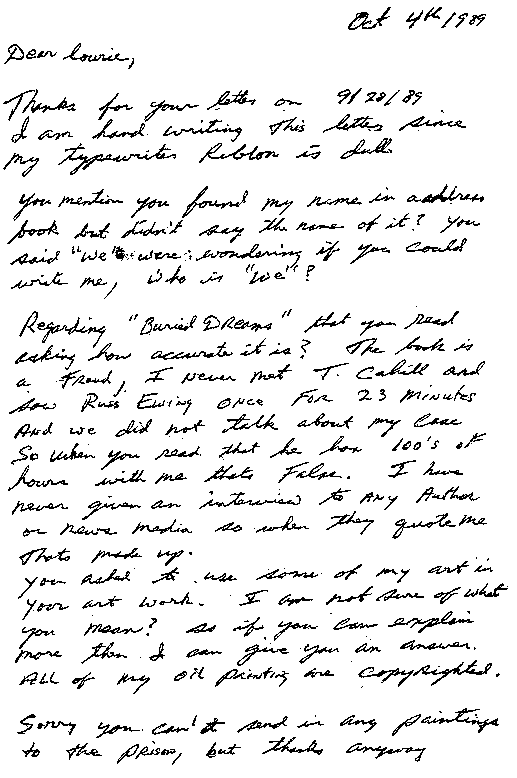 Oct 4th/1989
Dear Lowrie,
Thanks for your letter on 9/28/89
I am hand writing this letter since
my typewriter Ribbon is dull
You mention you found my name in address
book but didn't say the name of it? You
said "We" were wondering if you could
write me, who is "We"?
Regarding "Buried Dreams" that you read
asking how accurate it is? The book is
a Fraud, I never met T. Cahill and
saw Russ Ewing once For 23 minutes
And we did not talk about my Case
So when you read that he has 100's of
hours with me thats False. I have
never given an interview to Any Author
or news media so when they quote me
thats made up.
You asked to use some of my art in
your art work. I am not sure of what
you mean? so if you can explain
more then I can give you an answer.
All of my oil painting are copyrighted.
Sorry you can't send in any paintings
to the prison, but thanks anyway